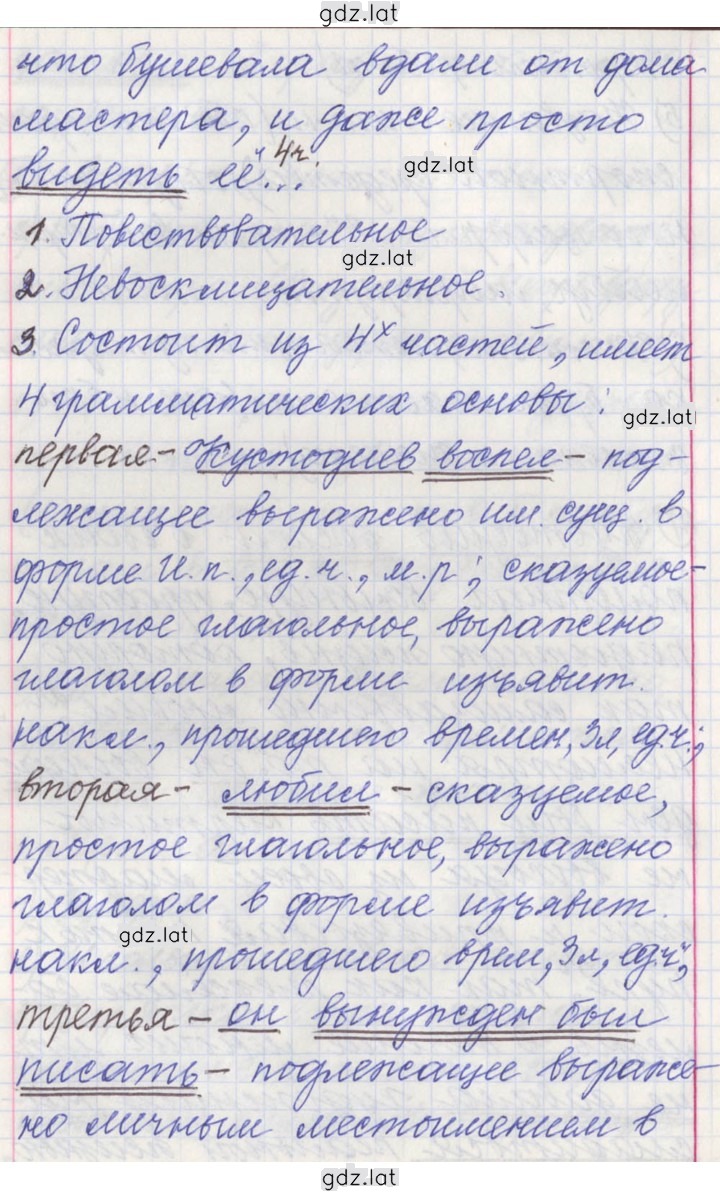 gdz.lat
что бушевала вдали от дома
мастера, и даже просто
видеть её... 4ч.
gdz.lat
1. Повествовательное
gdz.lat
2. Невосклицательное.
3. Состоит из 4х частей, имеет
4 грамматических основы:
gdz.lat
первая - Кустодиев воспел - под-
лежащее выражено им. сущ. в
форме И.п., ед.ч., м.р; сказуемое -
простое глагольное, выражено
глаголом в форме изъявит.
накл., прошедшего времен, 3л, ед.ч.;
вторая - любил - сказуемое,
простое глагольное, выражено
глаголом в форме изъявит.
gdz.lat
накл., прошедшего врем, 3л, ед.ч;
третья - он вынужден был
писать - подлежащее выраже-
но личным местоимением в
gdz.lat